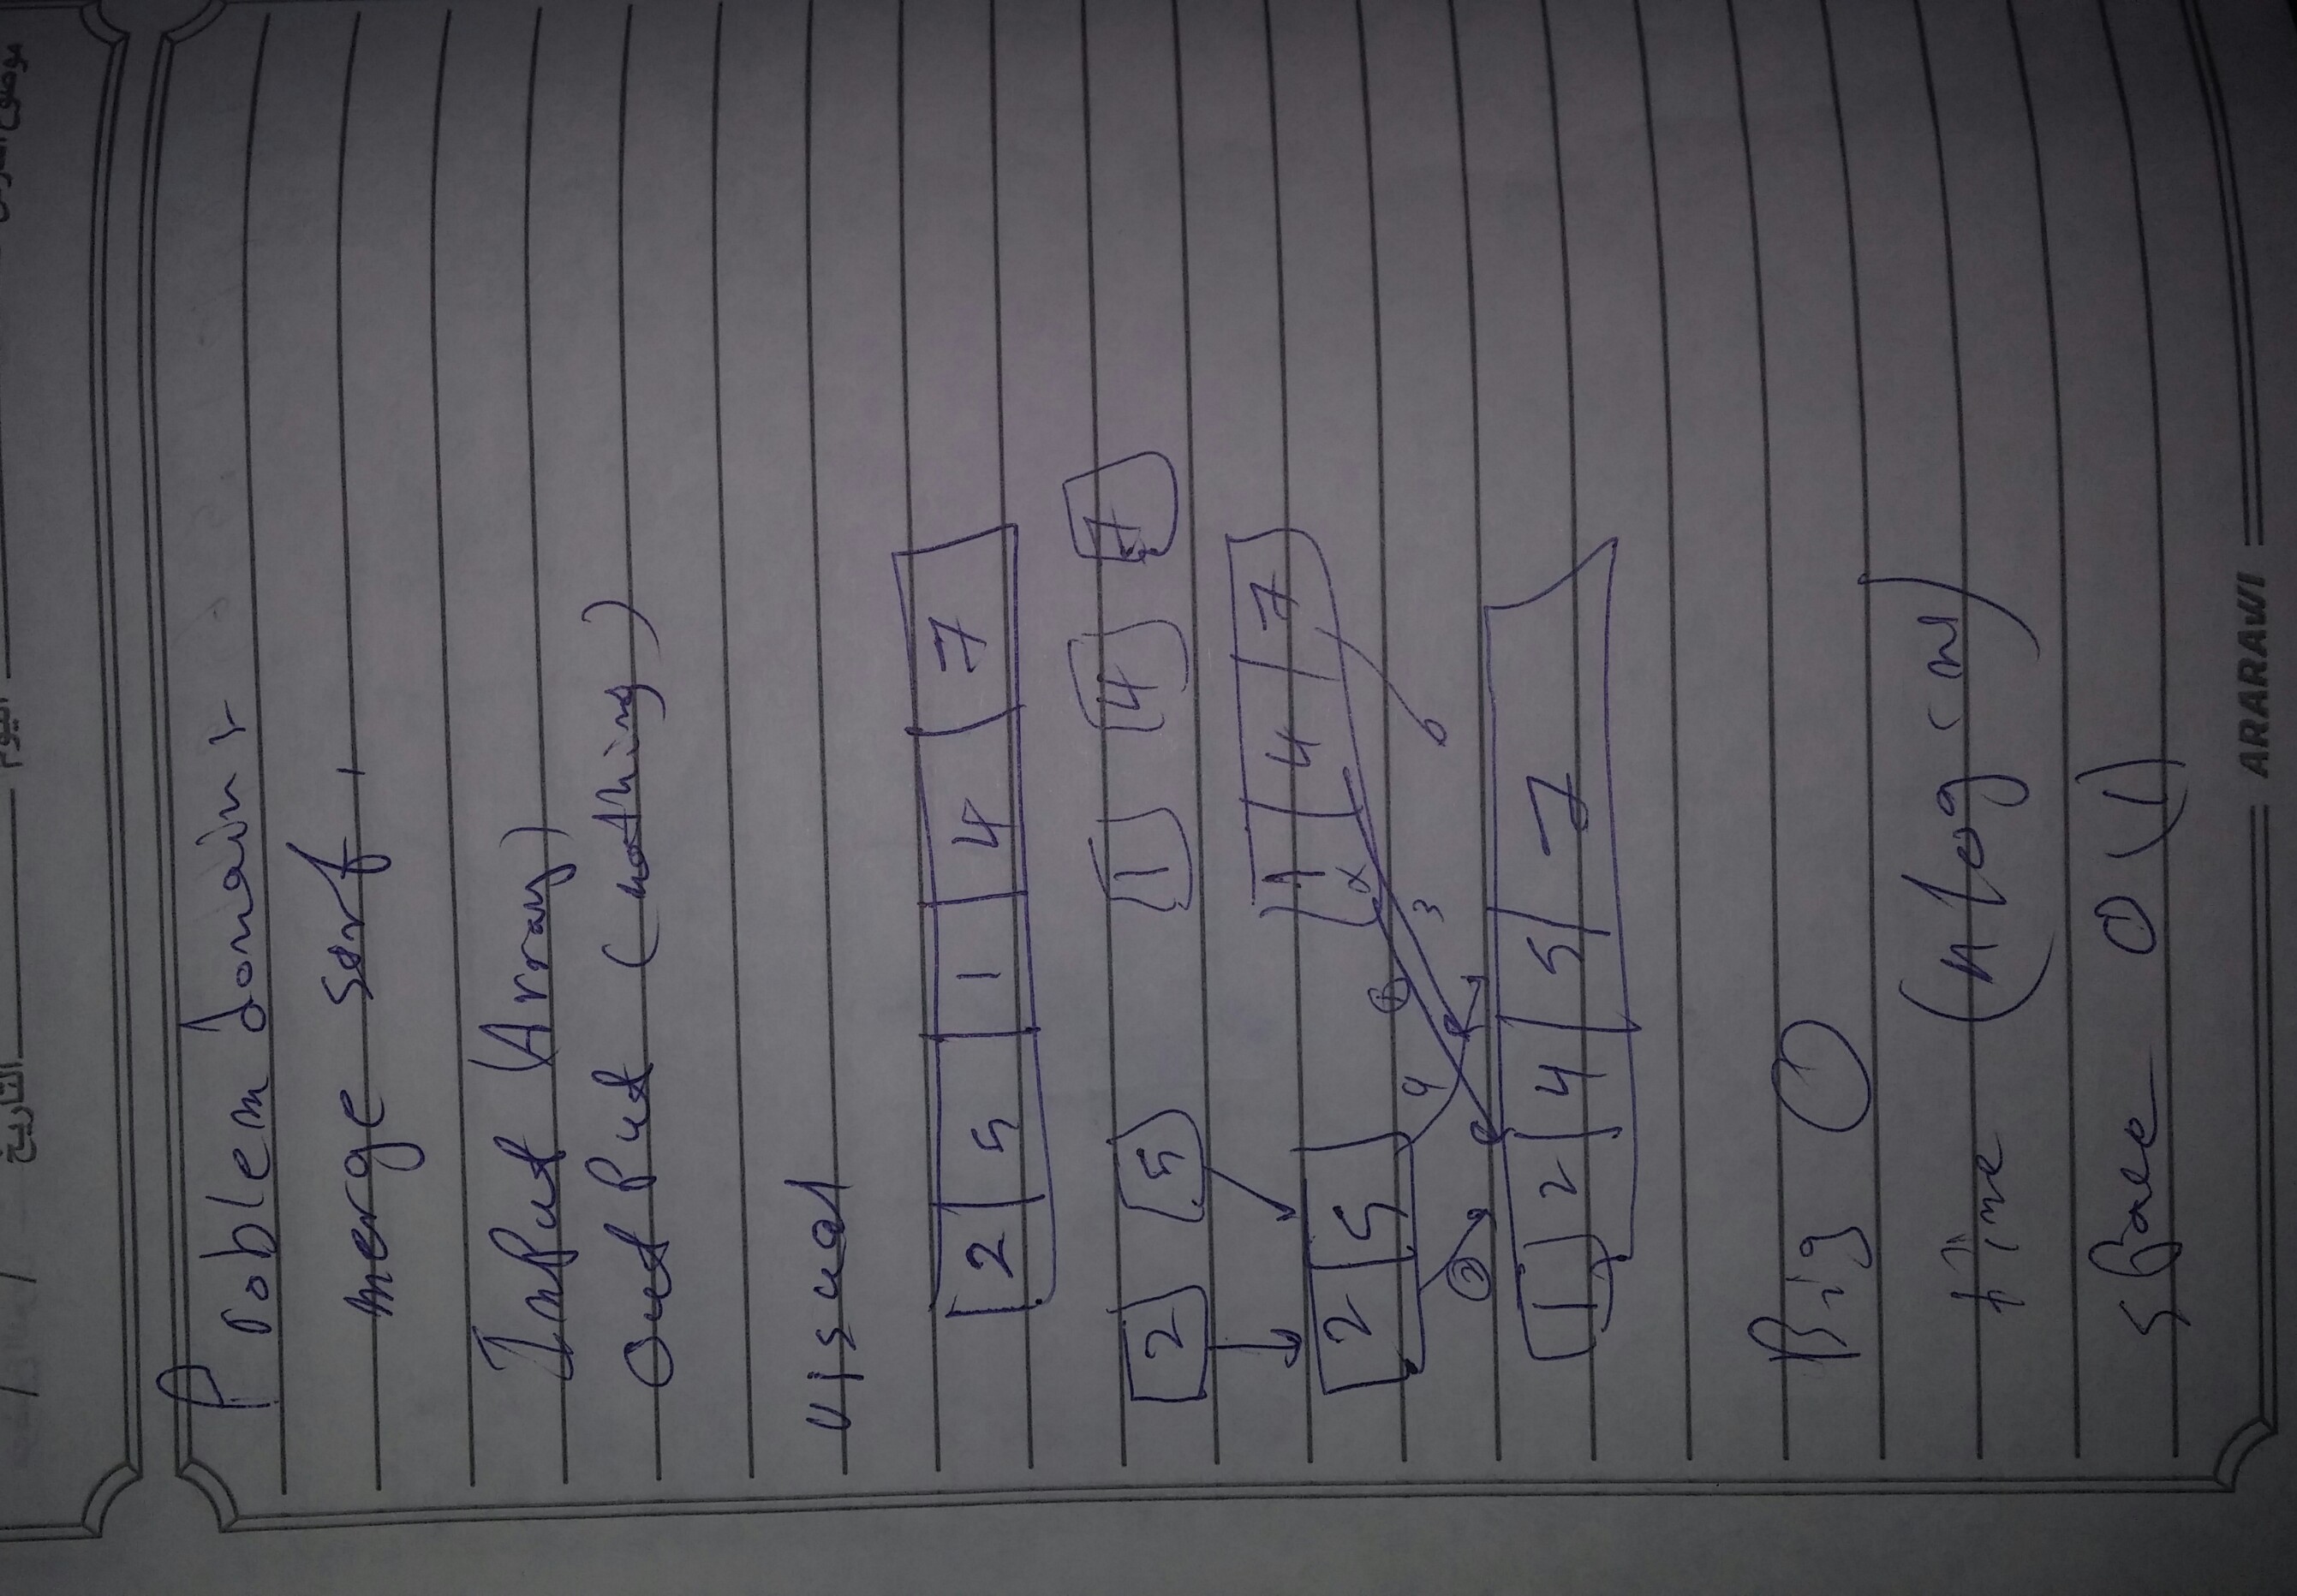 موضوع الدرس
اليوم
التاريخ
Problem Domain
merge sort
InPut (Array)
OutPut (nothing)
visual
2 5 1 4 7
2 5 1 4 7
2 5 1 4 7
2 3 4
1 2 4 5 7
Big O
time (n log (n)
sPace O(1)
ARARAWI